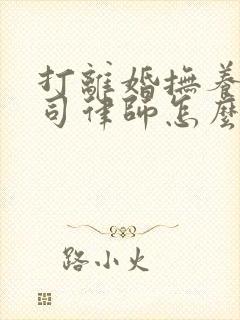 打離婚撫養
司律師怎麼
路小火